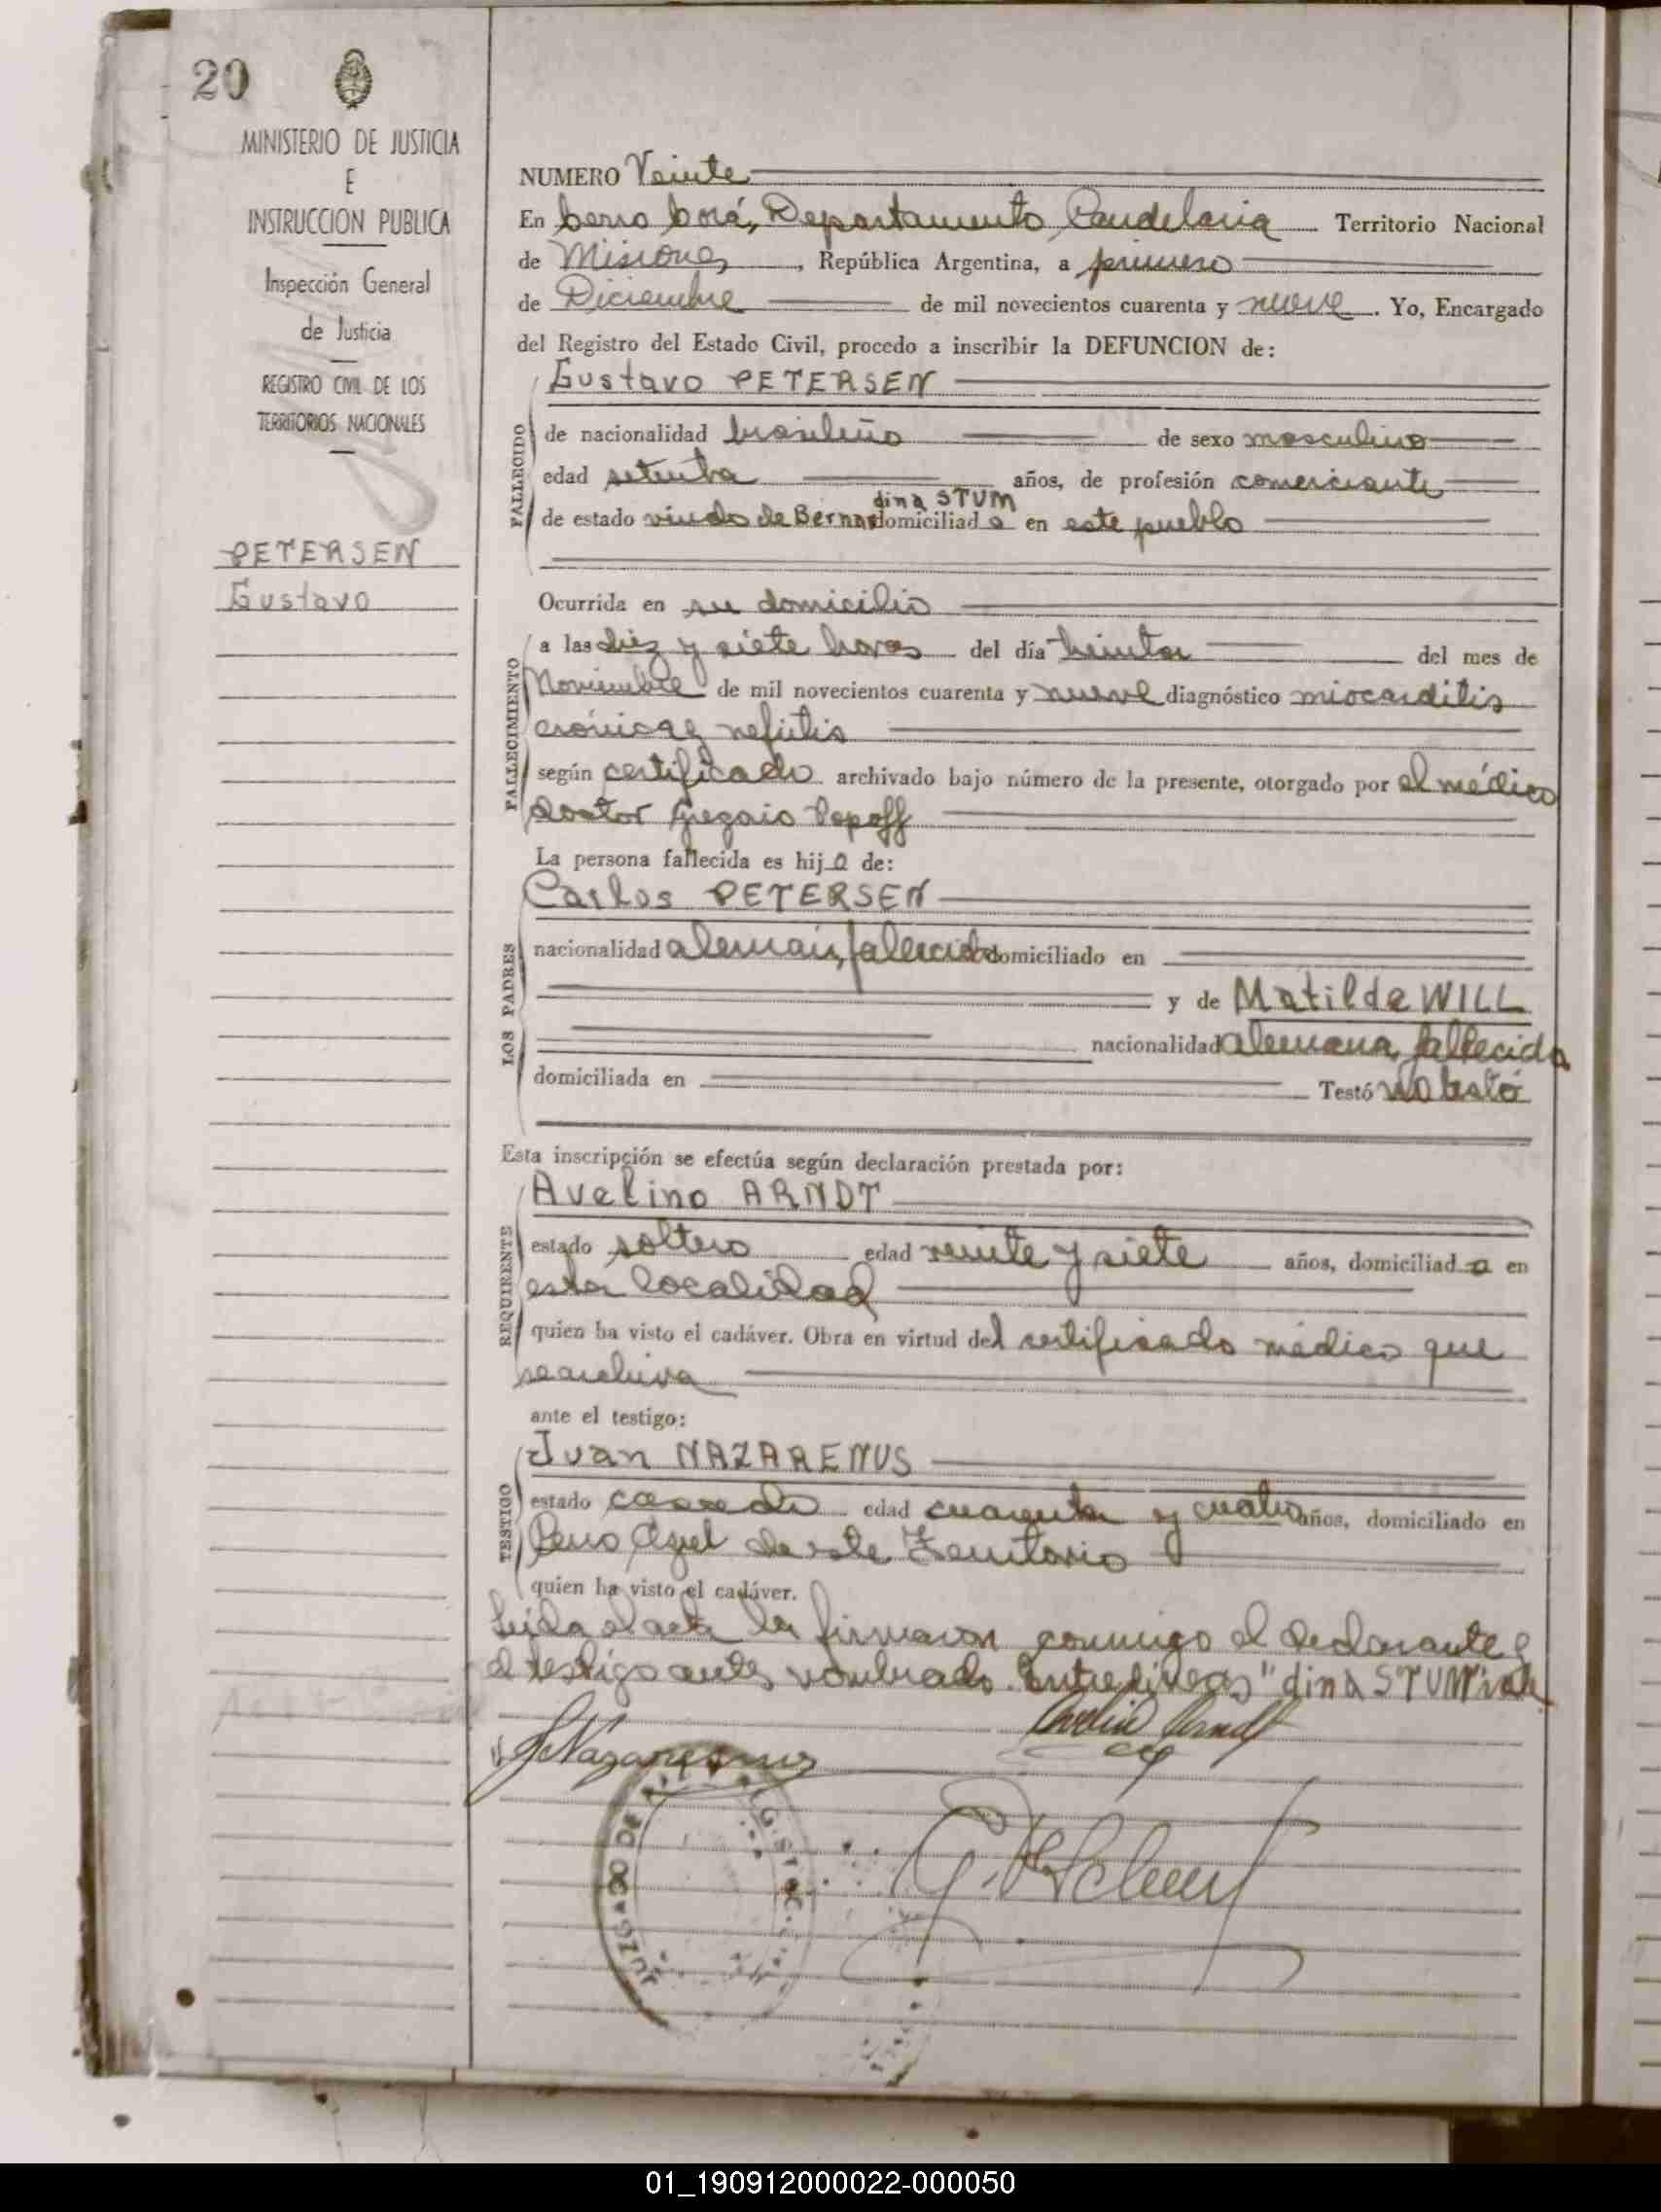 20
MINISTERIO DE JUSTICIA
E
INSTRUCCION PUBLICA
Inspección General
de Justicia
REGISTRO CIVIL DE LOS
TERRITORIOS NACIONALES
PETERSEN
Gustavo
NUMERO Veinte
En Cerro Corá, Departamento Candelaria Territorio Nacional
de Misiones, República Argentina, a primero
de Diciembre de mil novecientos cuarenta y nueve. Yo, Encargado
del Registro del Estado Civil, procedo a inscribir la DEFUNCION de:
Gustavo PETERSEN
FALLECIDO
de nacionalidad brasileño de sexo masculino
edad setenta años, de profesión comerciante
dina STUM
de estado viudo de Bernar domiciliado en este pueblo
Ocurrida en su domicilio
FALLECIMIENTO
a las diez y siete horas del día treinta del mes de
Noviembre de mil novecientos cuarenta y nueve diagnóstico miocarditis
crónica y nefritis
según certificado archivado bajo número de la presente, otorgado por el médico
doctor Gregorio Popoff
La persona fallecida es hijo de:
LOS PADRES
Carlos PETERSEN
nacionalidad aleman, fallecido domiciliado en
y de Matilde WILL
nacionalidad alemana, fallecida
domiciliada en Testó no testó
Esta inscripción se efectúa según declaración prestada por:
REQUIRENTE
Avelino ARNDT
estado soltero edad veinte y siete años, domiciliado en
esta localidad
quien ha visto el cadáver. Obra en virtud del certificado médico que
se archiva
ante el testigo:
TESTIGO
Juan NAZARENUS
estado casado edad cuarenta y cuatro años, domiciliado en
Cerro Azul de este Territorio
quien ha visto el cadáver.
Leida el acta la firmaron conmigo el declarante y
el testigo antes nombrado. Entrelineas "dina STUM" vale
Avelino Arndt
J Nazarenus
JUZGADO DE
01_190912000022-000050